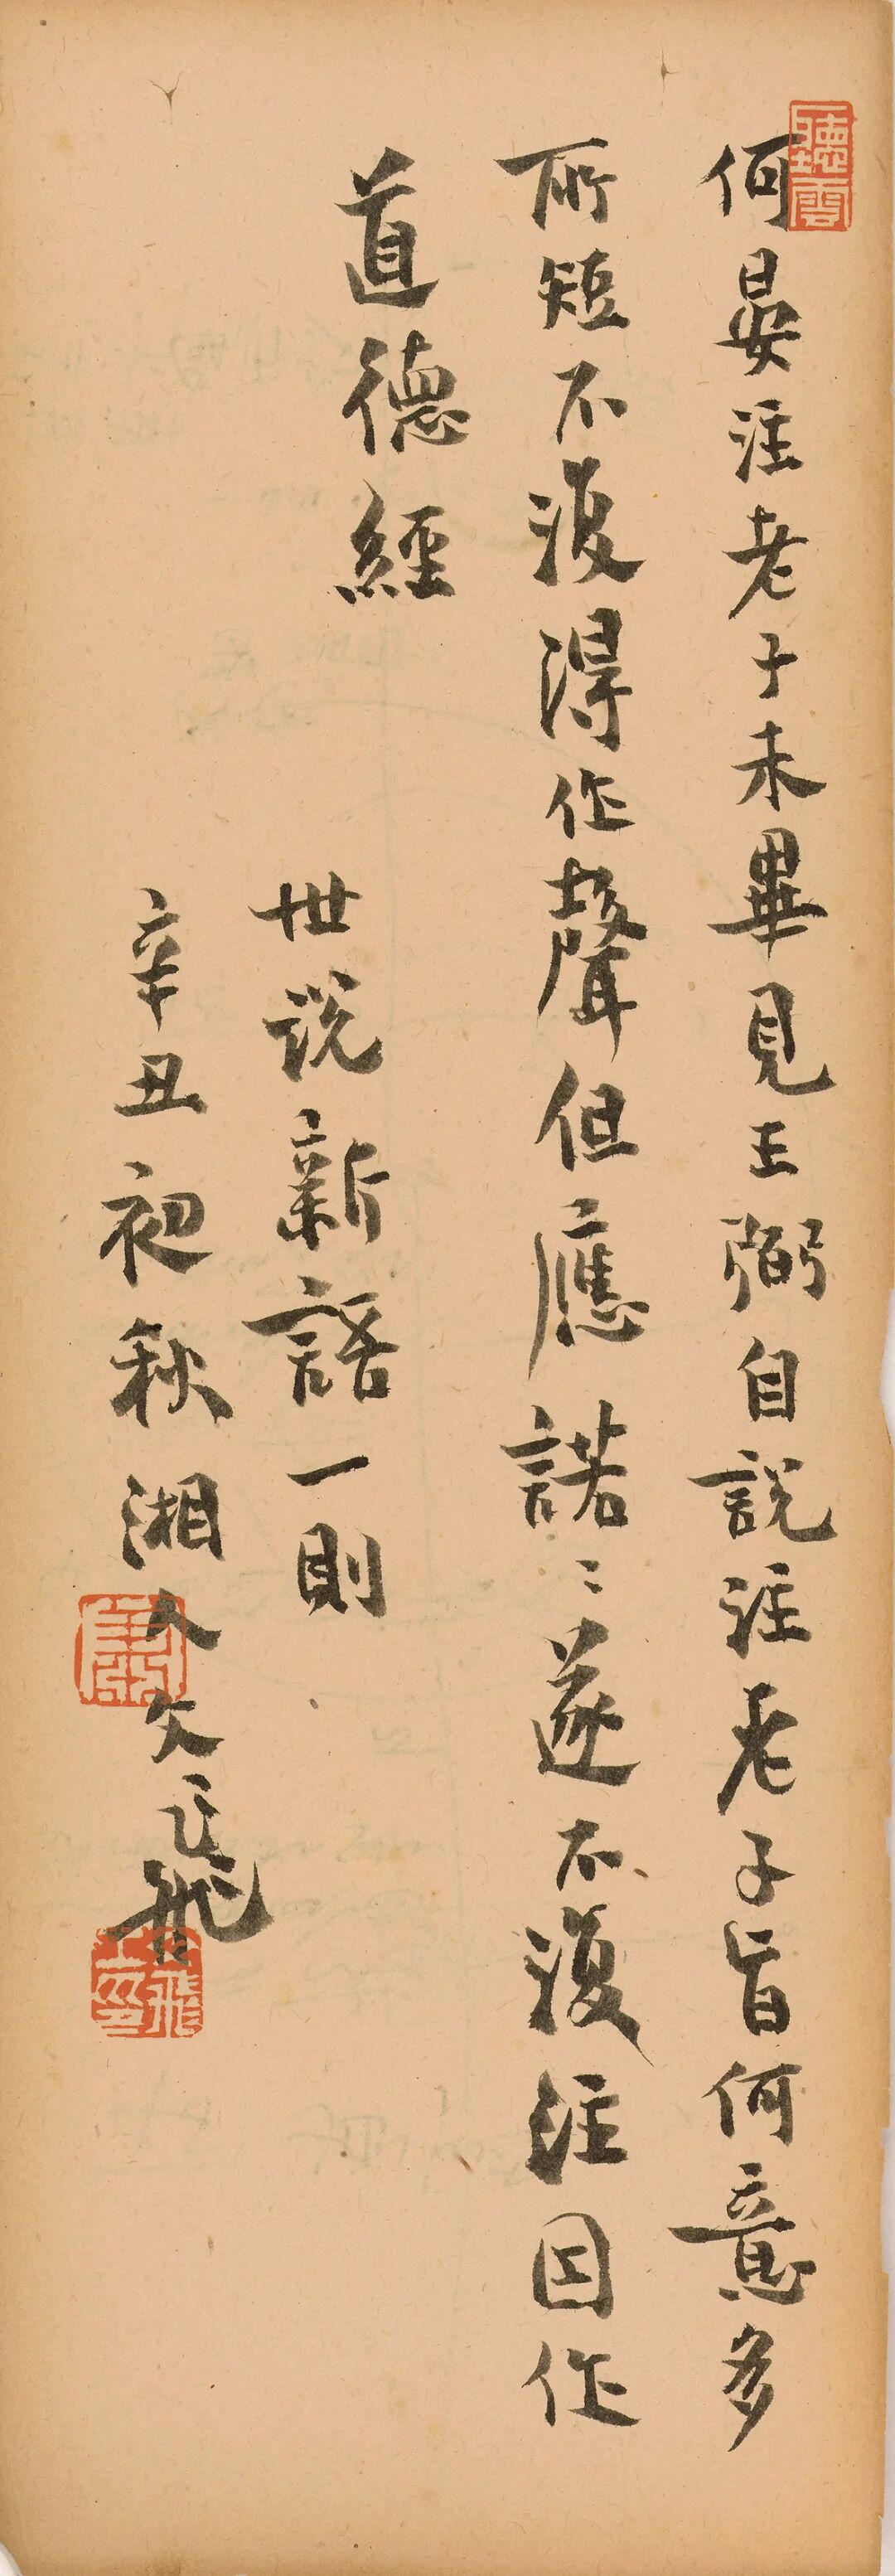 何晏注老子未畢見王弼自說注老子旨何意多
所短不復得作聲但應諾〻遂不復注因作
道德經
世說新語一則
辛丑初秋湘人文飛
聽雲